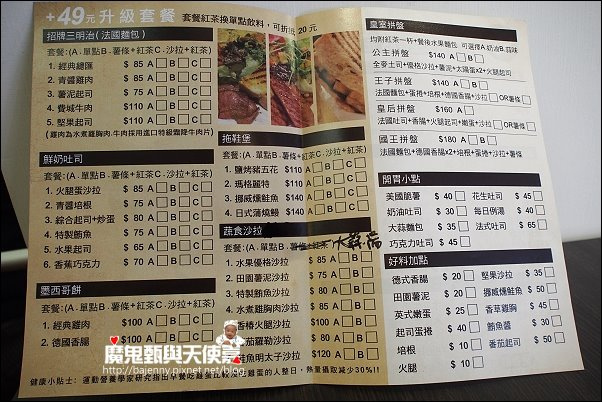 +49元 升級套餐 套餐紅茶換單點飲料，可折抵 20 元
招牌三明治(法國麵包)
套餐:(A.單點B.薯條+紅茶C.沙拉+紅茶)
1. 經典總匯 $ 85 A B C
2. 青醬雞肉 $ 85 A B C
3. 薯泥起司 $ 85 A B C
4. 費城牛肉 $110 A B C
5. 堅果起司 $110 A B C
(雞肉為水煮雞胸肉.牛肉採用進口特級霜降牛肉片)
鮮奶吐司
套餐:(A.單點 B.薯條+紅茶 C.沙拉+紅茶)
1. 火腿蛋沙拉 $ 85 A B C
2. 青醬培根 $ 75 A B C
3. 綜合起司+炒蛋 $ 80 A B C
4. 特製鮪魚 $ 75 A B C
5. 水果起司 $ 65 A B C
6. 香蕉巧克力 $ 70 A B C
墨西哥餅
套餐:(A.單點 B.薯條+紅茶 C.沙拉+紅茶)
1. 經典雞肉 $100 A B C
2. 德國香腸 $100 A B C
拖鞋堡
套餐:(A.單點 B.薯條+紅茶C.沙拉+紅茶)
1. 鹽烤豬五花 $110 A B C
2. 瑪格麗特 $110 A B C
3. 挪威燻鮭魚 $140 A B C
4. 日式蒲燒鰻 $140 A B C
蔬食沙拉
套餐:(A.單點 B.薯條+紅茶
1. 水果優格沙拉 $ 85 A B
2. 田園薯泥沙拉 $ 80 A B
3. 特製鮪魚沙拉 $ 90 A B
4. 水煮雞胸肉沙拉 $ 90 A B
香椿火腿沙拉 $100 A B
凱薩羅勒沙拉 $100 A B
鮭魚明太子沙拉 $120 A B
皇室拼盤
均附紅茶一杯+餐後水果麵包 可選擇A.奶油B.蒜味
公主拼盤 $140 A B
全麥土司+優格沙拉+薯泥+太陽蛋x2+火腿起司
王子拼盤 $140 A B
法國麵包+蛋捲+培根+德國香腸+沙拉 OR薯條
皇后拼盤 $160 A B
法國吐司+香腸+火腿起司+嫩蛋+沙拉 OR薯條
國王拼盤 $180 A B
法國麵包+德國香腸x2+培根+蛋捲+沙拉+薯條
開胃小點
美國脆薯 $ 40 花生吐司 $ 45
奶油吐司 $ 30 每日例湯 $ 40
大蒜麵包 $ 40 法式吐司 $ 65
巧克力吐司 $ 45
好料加點
德式香腸 $ 20 堅果沙拉 $ 35
田園薯泥 $ 20 挪威燻鮭魚 $ 50
英式嫩蛋 $ 25 香草雞胸 $ 45
起司蛋捲 $ 40 鮪魚醬 $ 30
培根 $ 10 蕃茄起司 $ 50
火腿 $ 10
健康小貼士：運動營養學家研究指出早餐吃雞蛋比較沒吃雞蛋的人整日，熱量攝取減少30%!!
魔鬼甄與天使嘉
http://bajenny.pixnet.net/blog